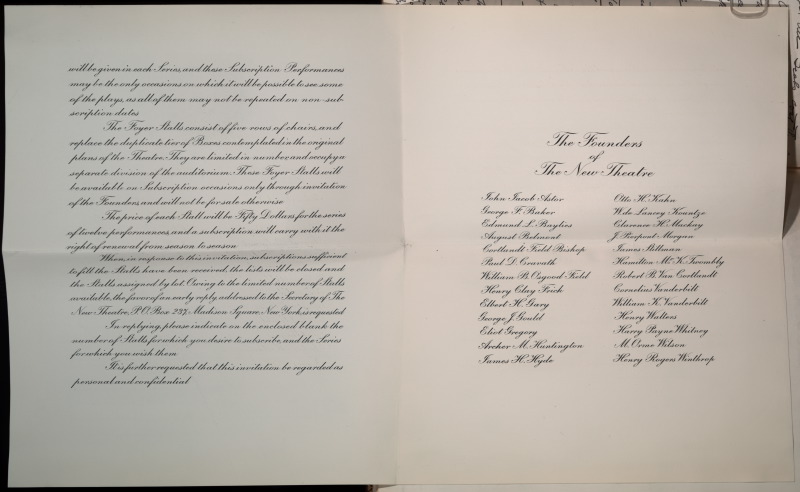 will be given in each Series, and these Subscription Performances
may be the only occasions on which it will be possible to see some
of the plays, as all of them may not be repeated on non-sub-
scription dates
The Foyer Stalls consist of five rows of chairs, and
replace the duplicate tier of Boxes contemplated in the original
plans of the Theatre. They are limited in number and occupy a
separate division of the auditorium. These Foyer Stalls will
be available on Subscription occasions only through invitation
of the Founders, and will not be for sale otherwise
The price of each Stall will be Fifty Dollars for the series
of twelve performances, and a subscription will carry with it the
right of renewal from season to season
When, in response to this invitation, subscriptions sufficient
to fill the Stalls have been received, the lists will be closed and
the Stalls assigned by lot. Owing to the limited number of Stalls
available, the favor of an early reply, addressed to the Secretary of The
New Theatre, P.O. Box 237, Madison Square, New York, is requested
In replying, please indicate on the enclosed blank the
number of Stalls for which you desire to subscribe, and the Series
for which you wish them
It is further requested that this invitation be regarded as
personal and confidential
The Founders
of
The New Theatre
John Jacob Astor
George F. Baker
Edmund L. Baylies
August Belmont
Cortlandt Field Bishop
Paul D. Cravath
William B. Osgood Field
Henry Clay Frick
Elbert H. Gary
George J. Gould
Eliot Gregory
Archer M. Huntington
James H. Hyde
Otto H. Kahn
W. de Lancey Kountze
Clarence H. Mackay
J. Pierpont Morgan
James Stillman
Hamilton Mc.K. Twombly
Robert B. Van Cortlandt
Cornelius Vanderbilt
William K. Vanderbilt
Henry Walters
Harry Payne Whitney
M. Orme Wilson
Henry Rogers Winthrop